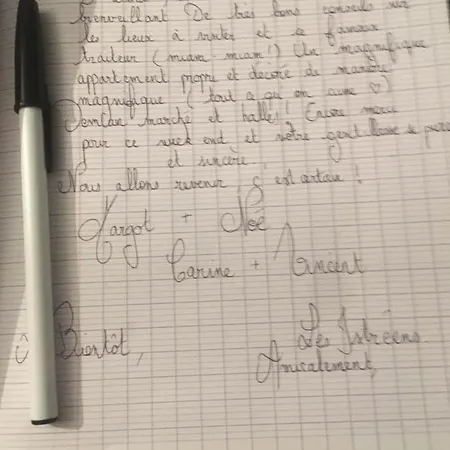 bienveillant. De très bons conseils sur
les lieux à visiter et ce fameux
traiteur (miam-miam !) Un magnifique
appartement propre et décoré de manière
magnifique (tout ce qu'on aime ♡)
marché et halles! Encore merci
pour ce week end et votre gentillesse si pure
et sincère.
Nous allons revenir, c'est certain !
Margot + Noé
Carine + Vincent
à Bientôt,
Les Istréens
Amicalement,